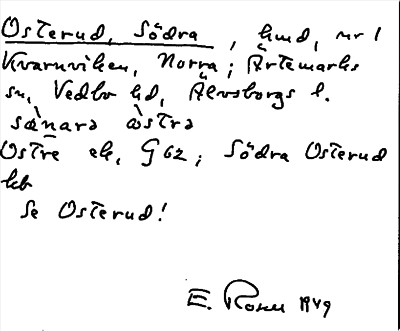 Osterud, Södra, hmd, nr 1
Kvarnviken, Norra; Ärtemarks
sn, Vedbo hd, Älvsborgs l.
sænara östra
Östre ek, G 62; Södra Osterud
kb
Se Osterud!
E. Rosell 1949